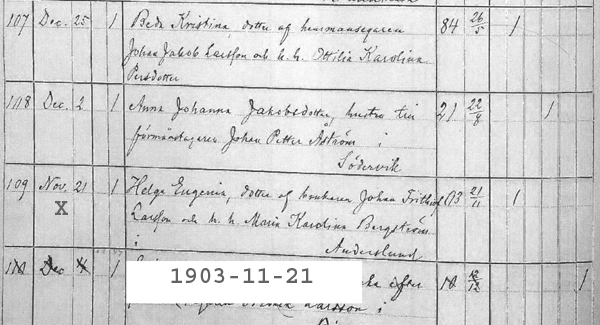 107 Dec. 25 1 Beda Kristina, dotter af hemmansegaren 84 26/5 1
Johan Jakob Larsson och h. h. Ottilia Karolina
Persdotter
108 Dec. 2 1 Anna Johanna Jakobsdotter, hustru till 21 22/8 1
förmånstagaren Johan Petter Åström i
Södervik
109 Nov. 21 1 Helga Eugenia, dotter af Johan Frithiof 03 21/11 1
X Larsson och h. h. Maria Karolina Bergström
i Anderslund
110 Dec 4 1 efter 10 12/12 1
1903-11-21
Larsson i